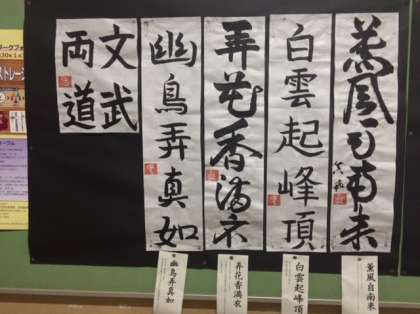 薫風自南来
白雲起峰頂
弄花香満衣
幽鳥弄真如
文武
両道
薫風自南来
白雲起峰頂
弄花香満衣
幽鳥弄真如